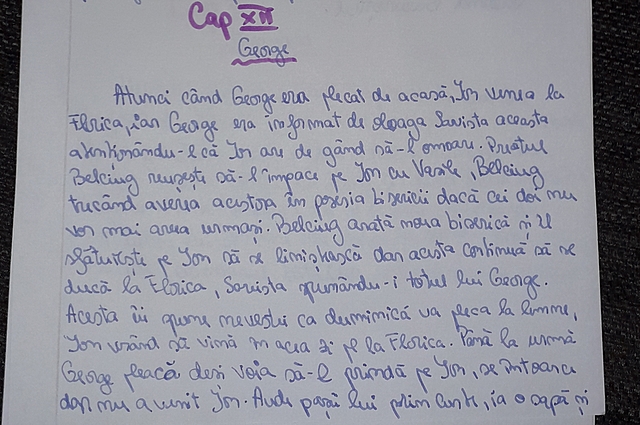 Cap XII
George
Atunci când George era plecat de acasă, Ion venea la
Florica, iar George era informat de sloaga Savista aceasta
atenționându-l că Ion are de gând să-l omoare. Preotul
Belciug reușește să-l împace pe Ion cu Vasile, Belciug
trecând averea acestora în posesia bisericii dacă cei doi nu
vor mai avea urmași. Belciug arată noua biserică și îl
sfătuiește pe Ion să se liniștească dar acesta continuă să se
ducă la Florica, Savista spunându-i totul lui George.
Acesta îi spune nevestei ca duminică va pleca la lemne,
Ion vrând să vină în acea zi pe la Florica. Până la urmă
George pleacă deși voia să-l prindă pe Ion, se întoarce
dar nu a venit Ion. Aude pașii lui prin curte, ia o sapă și